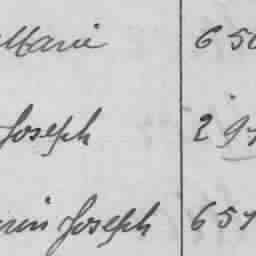 Marie 650
Joseph 297
Joseph 657